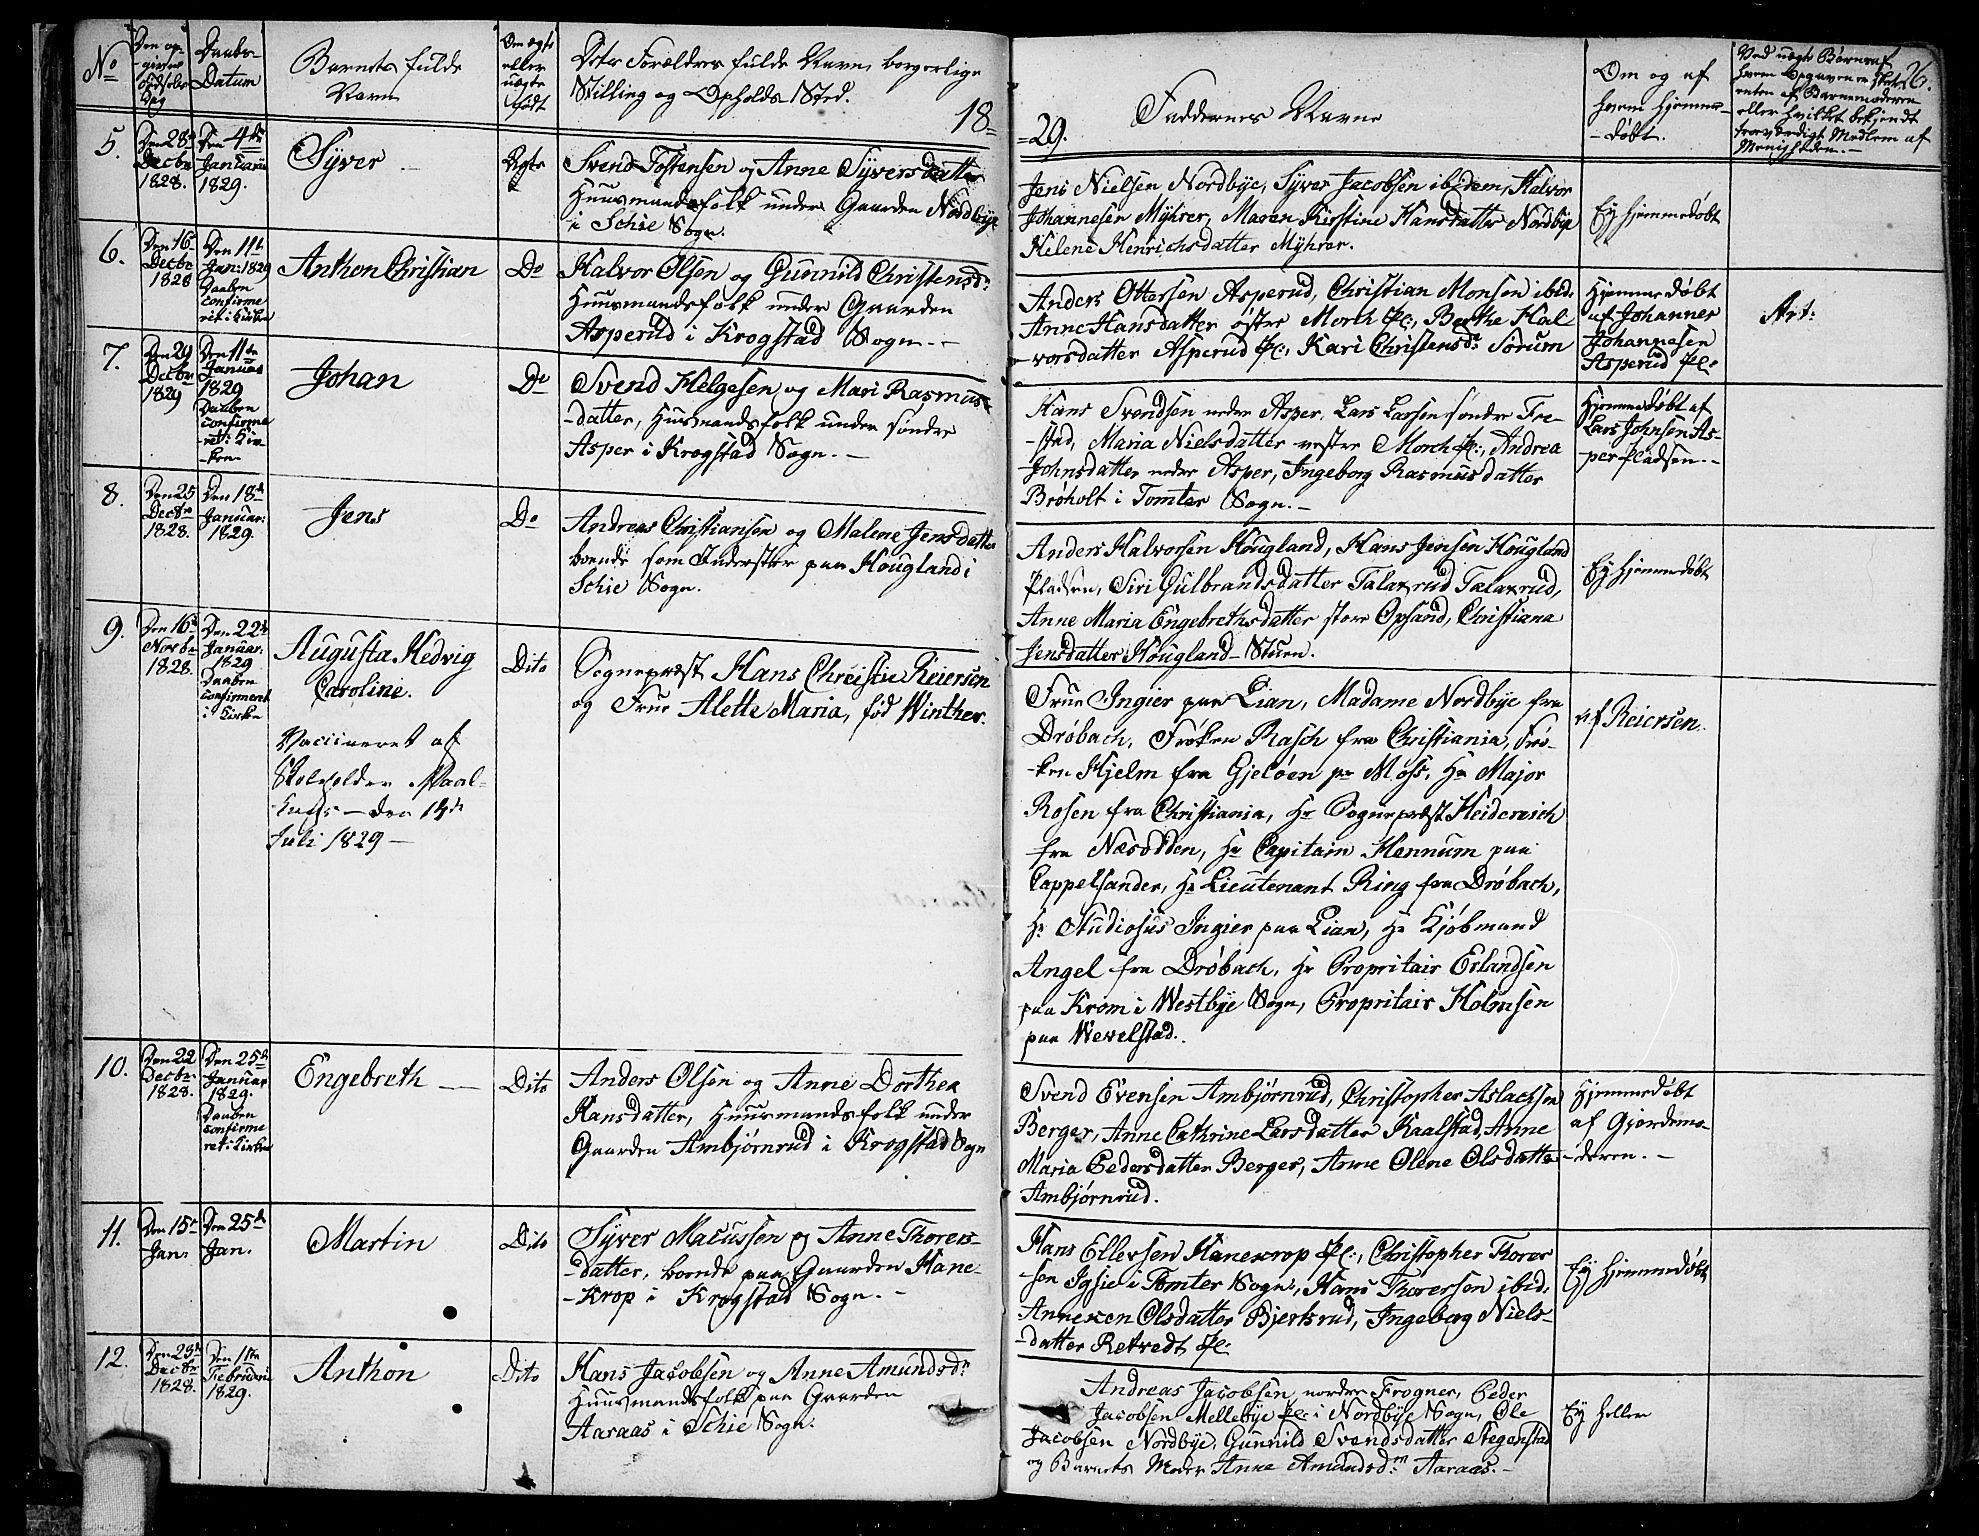 No
Den op-
givne
Fødsels
Dag
Daabs-
Datum
Barnets fulde
Navn
Om ægte
eller
uægte
født
Dets Forældres fulde Navn, borgerlige
Stilling og Opholds Sted.
18=
5.
Den 28de
Decbr
1828.
Den 4de
Januarii
1829.
Syver
Ægte
Svend Tostensen og Anne Syversdatter
Huusmandsfolk under Gaarden Nordbye
i Schie Sogn.
6.
Den 16
Decbr
1828
Den 11te
Jan: 1829
Daaben
confirme
ret i Kirken
Anthon Christian
Do
Halvor Olsen og Gunnild Christensdr
Huusmandsfolk under Gaarden
Asperud i Krogstad Sogn.-
7.
Den 29
Decbr
1829
Den 11te
Januar
1829
Daaben
confirme
-ret i Kir-
-ken
Johan
Do
Svend Helgesen og Mari Rasmus-
-datter, Husmandsfolk under søndre
Asper i Krogstad Sogn.-
8.
Den 25
Decbr
1828.
Den 18de
Januar:
1829.
Jens
Do
Andreas Christiansen og Malene Jensdatter
boende som Inderster paa Hougland i
Schie Sogn.
9.
Den 16de
Novbr
1828.
Den 22de
Januar:
1829
Daaben
confirmeret
i Kirken
Augusta Hedvig
Caroline.
Vaccineret af
Skoleholder Paal-
den 14de
Juli 1829 -
Dito
Sognepræst Hans Christie Reiersen
og Frue Alette Maria, fød Winther.
10.
Den 22
Decbr
1828.
Den 25de
Januar
1829.
Daaben
confirme
ret i Kirken
Engebreth
Dito
Anders Olsen og Anne Dorthea
Hansdatter, Huusmandsfolk under
Gaarden Ambjørnrud i Krogstad Sogn
11.
Den 15de
Jan.
Den 25de
Jan.
Martin
Dito
Syver Macussen og Anne Thorers-
-datter, boende paa Gaarden Hane-
-Krop i Krogstad Sogn.-
12.
Den 23de
Decbr
1828.
Den 11te
Februarii
1829.
Anthon
Dito
Hans Jacobsen og Anne Amundsdr
Huusmandsfolk paa Gaarden
Aaraas i Schie Sogn.
=29.
Faddernes Navne
Om og af
hvem hjemme-
-døbt.
Ved uægte Børn, af
hvem Opgaven er sket,
enten af Barnemoderen
eller hvilket bekjendt
troværdigt Medlem af
Menigheden.-
26.
Jens Nielsen Nordbye, Syver Jacobsen ibidem, Halvor
Johannesen Myhrer, Maren Kirstine Hansdatter Nordbye
Helene Henrichsdatter Myhrer.
Ey hjemmedøbt
Anders Ottersen Asperud, Christian Monsen ibid:
Anne Hansdatter østre Morch Pl:, Berthe Hal
vorsdatter Asperud Pl:, Kari Christensdr Sørum
Hjemmedøbt
af Johannes
Johannesen
Asperud Pl:
Att:
Hans Svendsen nedre Asper, Lars Larsen søndre Fre-
-stad, Maria Nielsdatter vestre Morch Pl:, Andrea
Johnsdatter nedre Asper, Ingeborg Rasmusdatter
Brøholt i Tomter Sogn.-
Hjemmedøbt af
Lars Johnsen As-
per Pladsen.-
Anders Halvorsen Hougland, Hans Jensen Hougland
Pladsen, Siri Gulbrandsdatter Talaxrud Talaxrud,
Anne Maria Engebrethsdatter store Opsand, Christiana
Jensdatter Hougland-Stuen.
Ey hjemmedøbt
Frue Ingier paa Lian, Madame Nordbye fra
Drøbach, Frøken Rasch fra Christiania, Frø-
-ken Hjelm fra Gjeløen pr Moss, Hr Major
Rosen fra Christiania, Hr Sognepræst Heiderich
fra Næsodden, Hr Capitain Hennum paa
Cappelsanden, Hr Lieutenant Ring fra Drøbach,
Hr Studiosus Ingier paa Lian, Hr Kjøbmand
Angel fra Drøbach, Hr Propritair Erlandsen
paa Krom i Westbye Sogn, Propritair Holmsen
paa Wevelstad.
af Reiersen.
Svend Evensen Ambjørnrud, Christopher Aslachsen
Berger, Anne Cathrine Larsdatter Kaalstad, Anne
Maria Pedersdatter Berger, Anne Olene Olsdatter
Ambjørnrud.
Hjemmedøbt
af Gjordemo-
-deren.-
Hans Ellevsen Hanekrop Pl:, Christopher Thorer
-sen Igsie i Tomter Sogn, Hans Thorersen ibid.
Anneken Olsdatter Bjerksrud, Ingeborg Niels-
-datter Retvedt Pl:
Ey hjemmedøbt
Andreas Jacobsen nordre Frogner, Peder
Jacobsen Mellebye Pl: i Nordbye Sogn, Ole
Jacobsen Nordbye, Gunnild Svendsdatter Stegenstad
og Barnets Moder Anne Amundsdr Aaraas.-
Ey heller